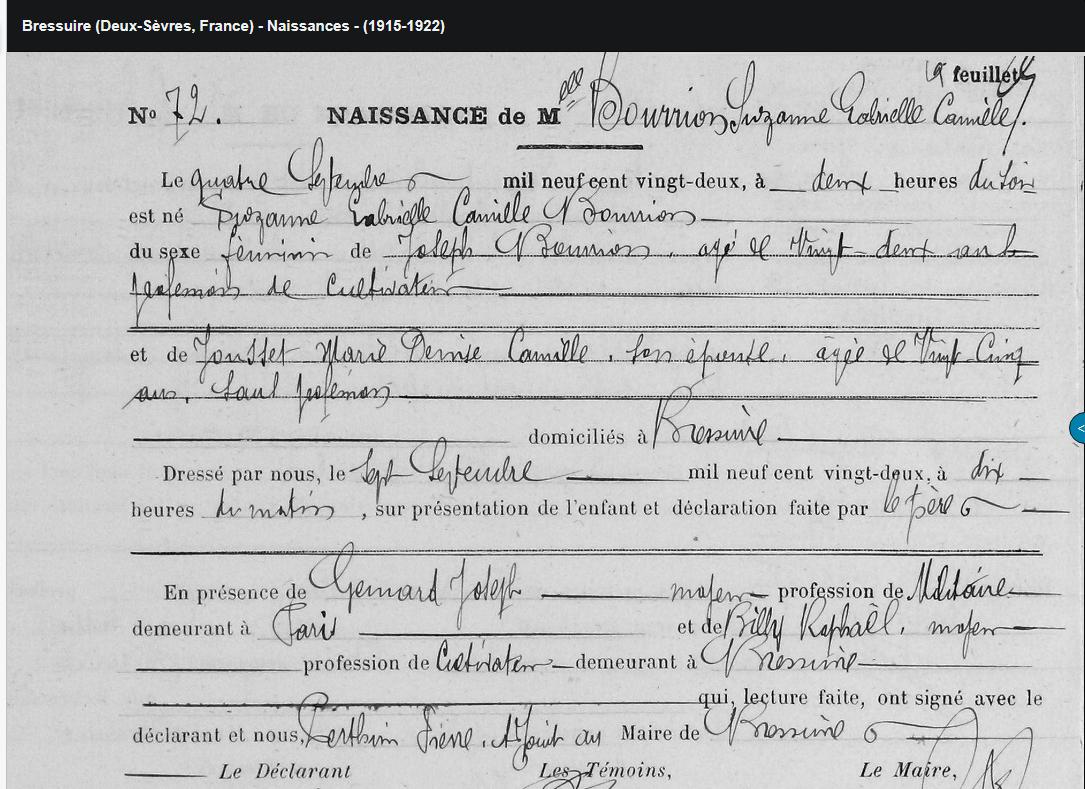 Bressuire (Deux-Sèvres, France) - Naissances - (1915-1922)
feuillet
No 72. NAISSANCE de Melle Bourrion Suzanne Gabrielle Camille.
Le quatre Septembre mil neuf cent vingt-deux, à deux heures du soir
est né Suzanne Gabrielle Camille Bourrion
du sexe féminin de Joseph Bourrion, agé de Vingt-deux ans
profession de Cultivateur
et de Jousset Marie Denise Camille, son épouse, agée de Vingt-Cinq
ans, sans profession
domiciliés à Bressuire
Dressé par nous, le Sept Septembre mil neuf cent vingt-deux, à dix
heures du matin, sur présentation de l'enfant et déclaration faite par le père
En présence de Joseph majeur profession de Militaire
demeurant à Paris et de Billy Raphaël, majeur
profession de Cultivateur demeurant à Bressuire
qui, lecture faite, ont signé avec le
déclarant et nous, Pierre, Adjoint au Maire de Bressuire
Le Déclarant Les Témoins, Le Maire,